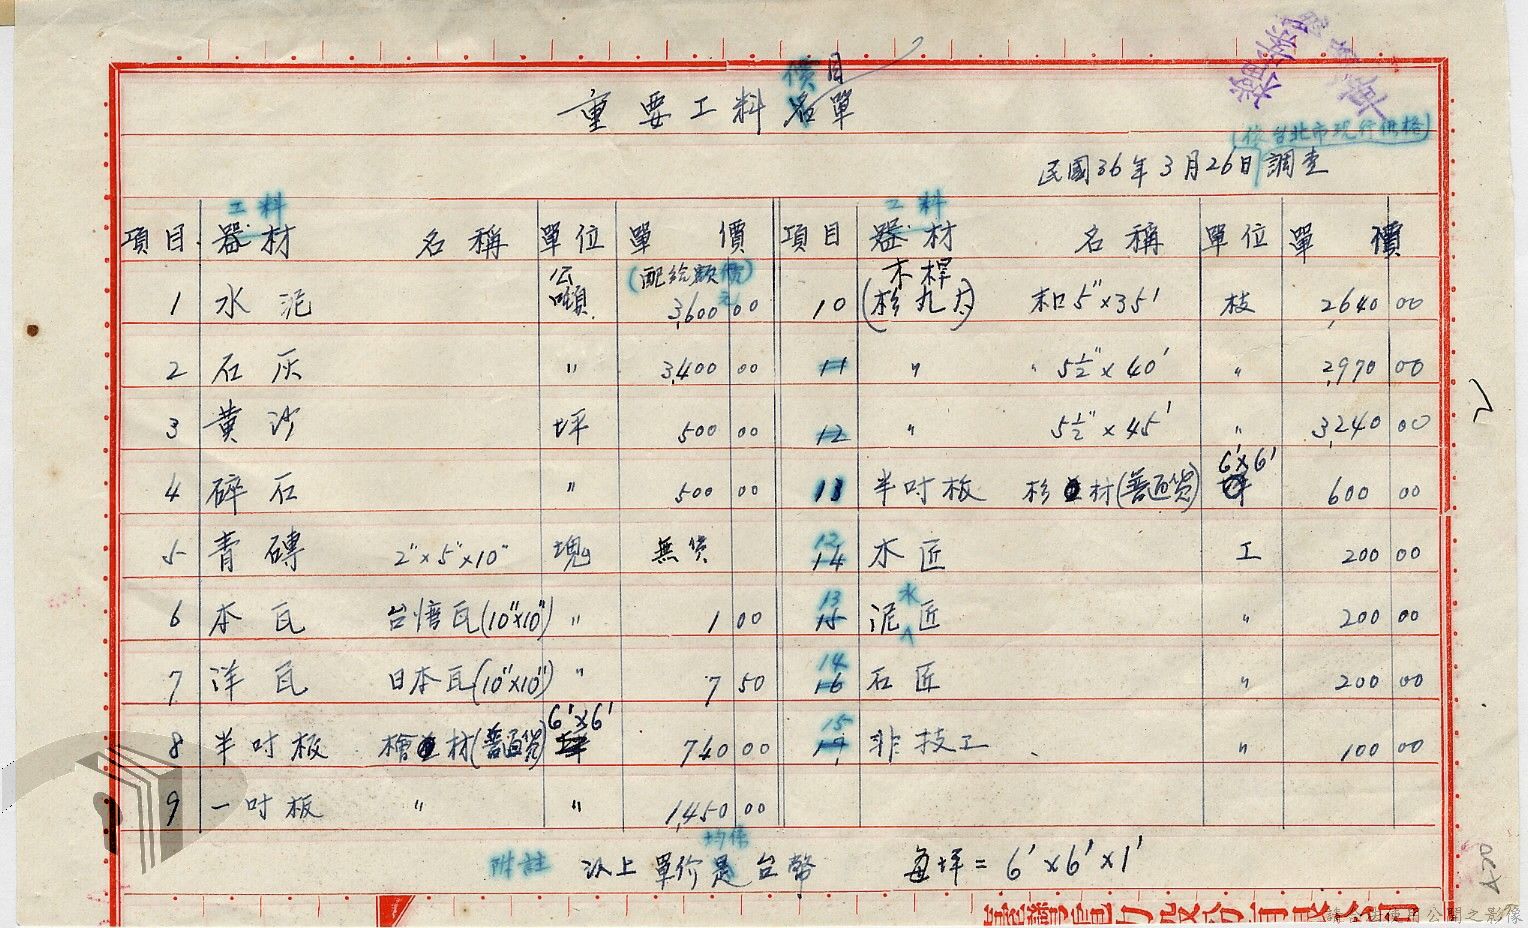 價目
重要工料名單
(依台北市現行價格)
民國36年3月26日調查
工料 工料
項目 器材 名稱 單位 單價 項目 器材 名稱 單位 單價
1 水泥 公噸 (配給額價) 3,600 00 10 木桿(杉丸太) 末口5"×35' 枝 2,640 00
2 石灰 " 3,400 00 11 " " 5½"×40' " 2,970 00
3 黄沙 坪 500 00 12 " 5½"×45' " 3,240 00
4 碎石 " 500 00 11 半吋板 杉材(普通貨) 6'×6' 600 00
5 青磚 2"×5"×10" 塊 無貨 12 14 木匠 工 200 00
6 本瓦 瓦(10"×10") " 1 00 13 15 泥水匠 " 200 00
7 洋瓦 日本瓦(10"×10") " 7 50 14 16 石匠 " 200 00
8 半吋板 檜材(普通貨) 6'×6' 740 00 15 17 非技工 " 100 00
9 一吋板 " " 1,450 00
附註 以上單价均係台幣 每坪=6'×6'×1'